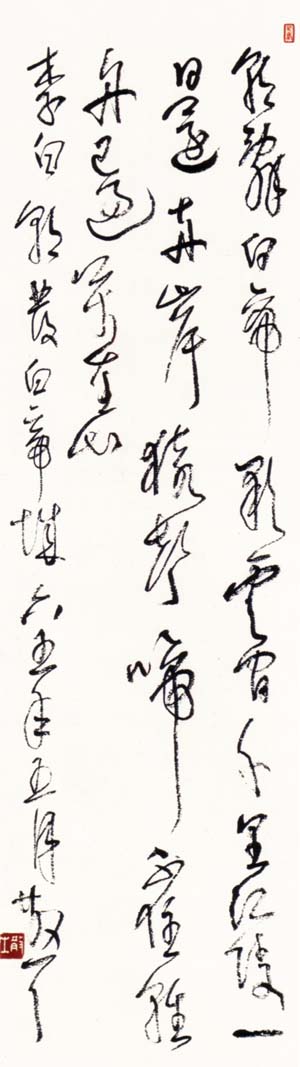 朝辭白帝彩雲間千里江陵一
日還兩岸猿聲啼不住輕
舟已過萬重山
李白朝發白帝城六五年五月散耳